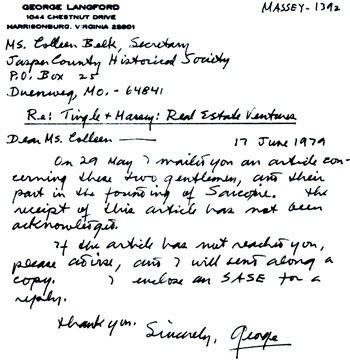 GEORGE LANGFORD
1044 CHESTNUT DRIVE
HARRISONBURG, VIRGINIA 22801
MASSEY-1392
Ms. Colleen Belk, Secretary
Jasper County Historical Society
P.O. Box 25
Duenweg, Mo. - 64841
Re: Tingle & Massey: Real Estate Venture
Dear Ms. Colleen —
17 June 1979
On 29 May I mailed you an article con-
cerning these two gentlemen, and their
part in the founding of Sarcoxie. The
receipt of this article has not been
acknowledged.
If the article has not reached you,
please advise, and I will send along a
copy. I enclose an SASE for a
reply.
Thank you.
Sincerely, George